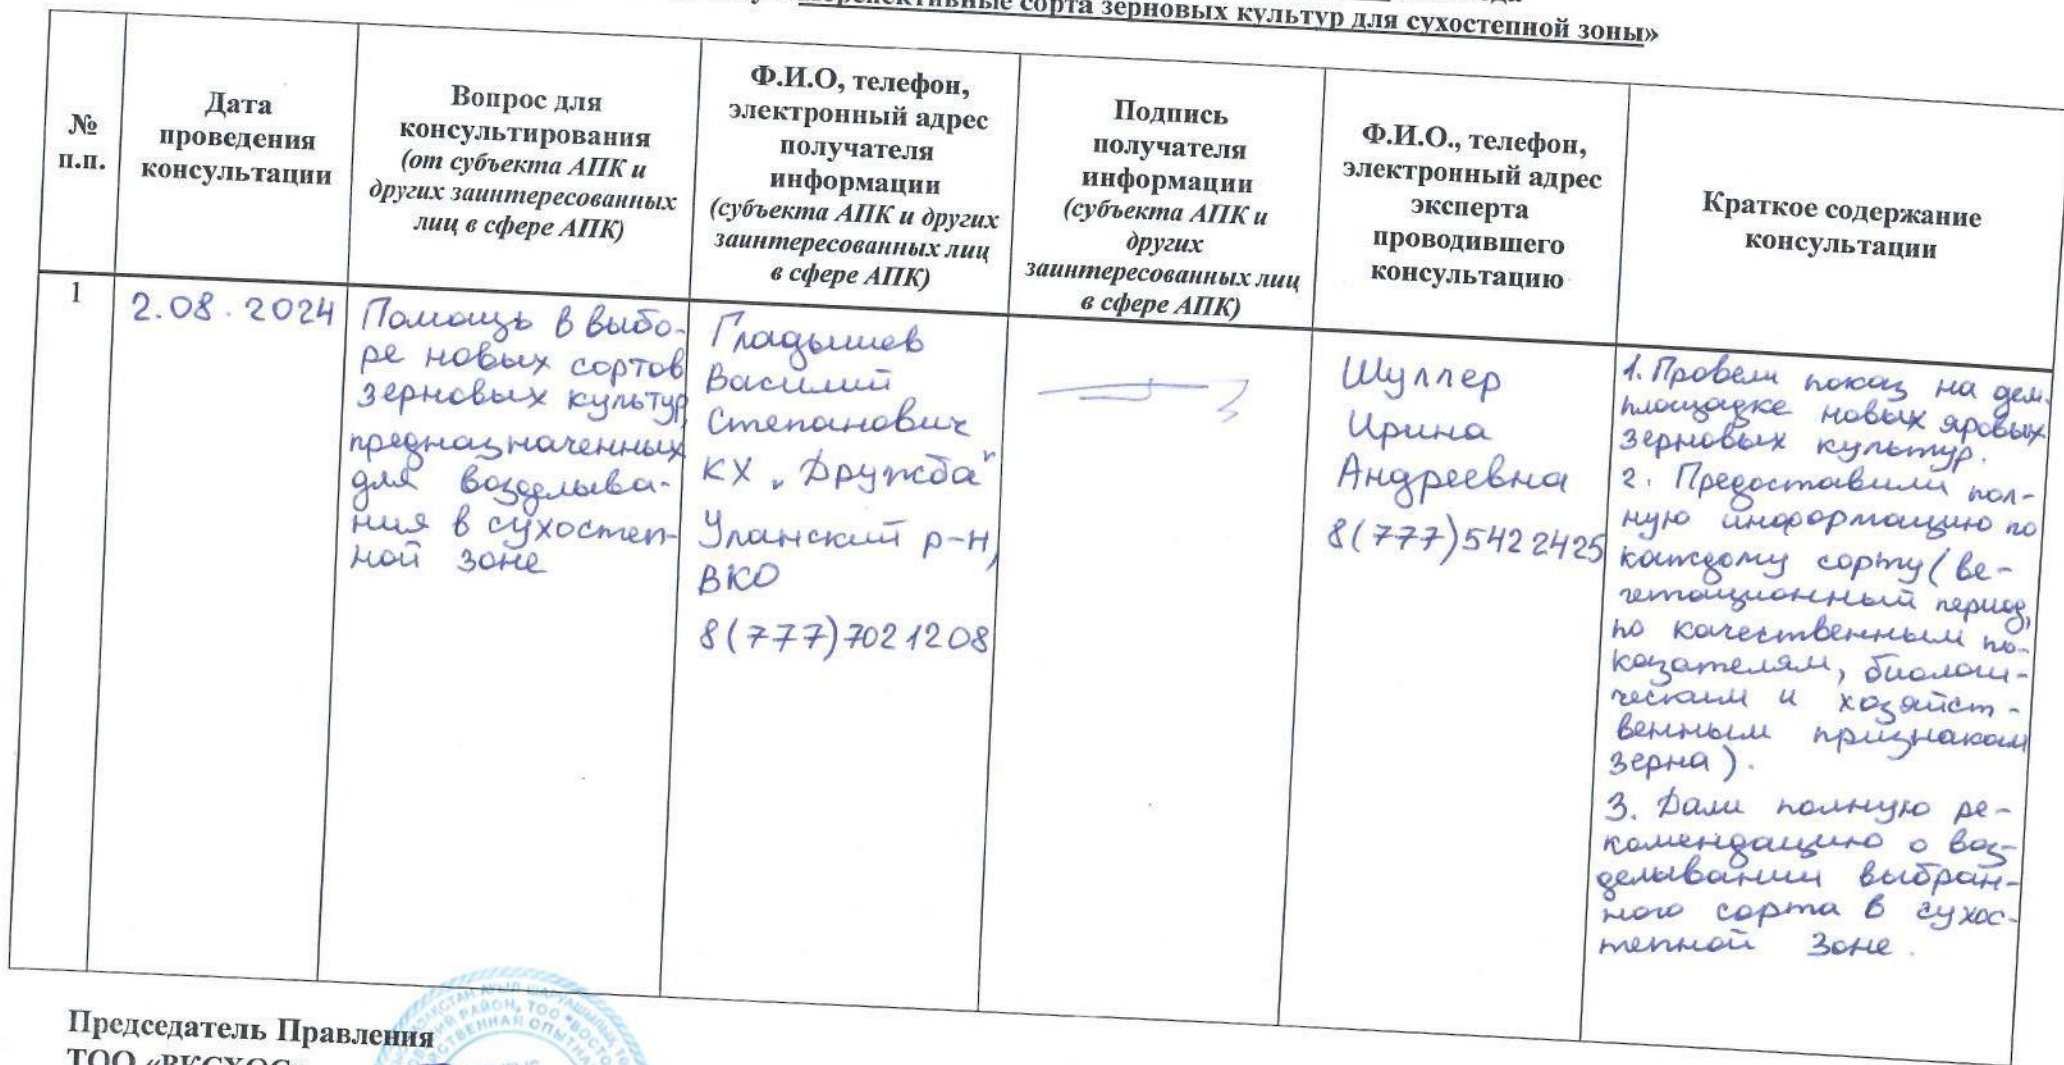 сорта зерновых культур для сухостепной зоны»
№
п.п.
Дата
проведения
консультации
Вопрос для
консультирования
(от субъекта АПК и
других заинтересованных
лиц в сфере АПК)
Ф.И.О, телефон,
электронный адрес
получателя
информации
(субъекта АПК и других
заинтересованных лиц
в сфере АПК)
Подпись
получателя
информации
(субъекта АПК и
других
заинтересованных лиц
в сфере АПК)
Ф.И.О., телефон,
электронный адрес
эксперта
проводившего
консультацию
Краткое содержание
консультации
1
2.08.2024
Помощь в выбо-
ре новых сортов
зерновых культур,
предназначенных
для возделыва-
ния в сухостеп-
ной зоне
Гладышев
Василий
Степанович
КХ „Дружба"
Уланский р-н,
ВКО
8(777)7021208
Шуллер
Ирина
Андреевна
8(777)5422425
1. Провели показ на дем.
площадке новых яровых
зерновых культур.
2. Предоставили пол-
ную информацию по
каждому сорту (ве-
гетационный период,
по качественным по-
казателям, биологи-
ческим и хозяйст-
венным признакам
зерна).
3. Дали полную ре-
комендацию о воз-
делывании выбран-
ного сорта в сухос-
тепной зоне.
Председатель Правления
ТОО «ВКСХОС»